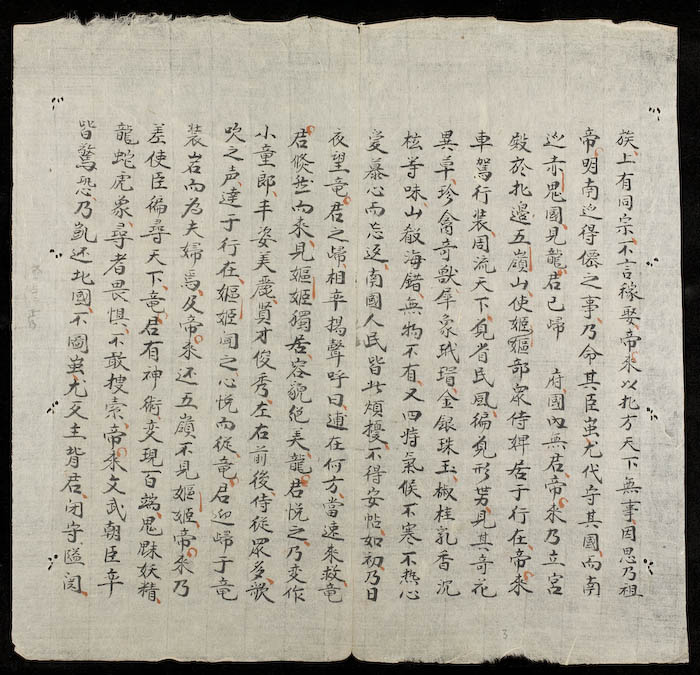 族上有同宗不言稼娶帝来以北方天下無事因思乃祖
帝明南巡得僊之事乃命其臣蚩尤代守其國而南
巡赤鬼國見龍君已歸 府國內無君帝来乃立宮
殿於北邊五嶺山使嫗姬部衆侍婢居于行在帝来
車駕行裝周流天下覓省民風徧覓形势見其奇花
異草珍禽奇獸犀象玳瑁金銀珠玉椒桂乳香沉
枟等味山殽海錯無物不有又四時氣候不寒不热心
愛慕心而忘返南國人民皆苦煩擾不得安帖如初乃日
夜望竜君之歸相率揚聲呼曰逋在何方當速来救竜
君倏然而来見嫗姬獨居容貌絕美龍君悅之乃变作
小童郎丰姿美麗賢才俊秀左右前後侍從眾多歌
吹之声達于行在嫗姬聞之心悅而從竜君迎歸于竜
裝岩而為夫婦焉及帝来还五嶺不見嫗姬帝来乃
差使臣徧尋天下竜君有神術变現百端鬼魅妖精
龍蛇虎象尋者畏惧不敢搜索帝来文武朝臣卒
皆驚恐乃凱还北國不圖蚩尤交主背君闭守隘関
3